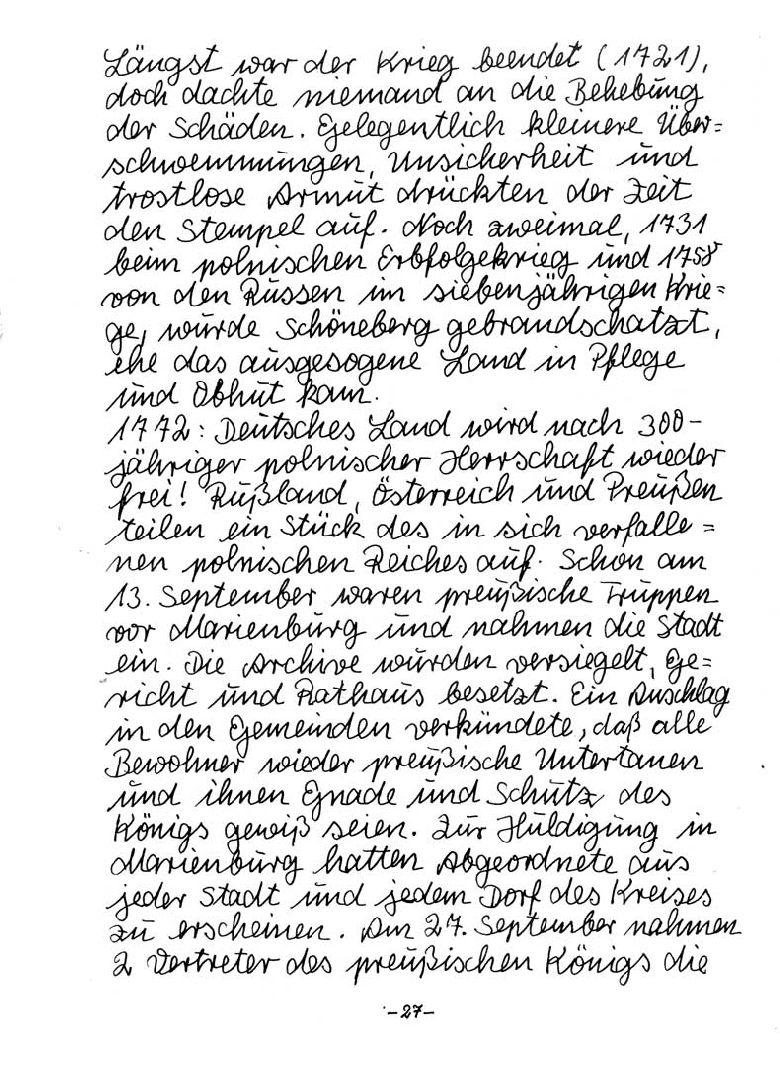 Längst war der Krieg beendet (1721),
doch dachte niemand an die Behebung
der Schäden. Gelegentlich kleinere Über=
schwemmungen, Unsicherheit und
trostlose Armut drückten der Zeit
den Stempel auf. Noch zweimal, 1731
beim polnischen Erbfolgekrieg und 1758
von den Russen im siebenjährigen Krie=
ge, wurde Schöneberg gebrandschatzt,
ehe das ausgesogene Land in Pflege
und Obhut kam.
1772: Deutsches Land wird nach 300-
jähriger polnischer Herrschaft wieder
frei! Rußland, Österreich und Preußen
teilen ein Stück des in sich verfalle=
nen polnischen Reiches auf. Schon am
13. September waren preußische Truppen
vor Marienburg und nahmen die Stadt
ein. Die Archive wurden versiegelt, Ge=
richt und Rathaus besetzt. Ein Anschlag
in den Gemeinden verkündete, daß alle
Bewohner wieder preußische Untertanen
und ihnen Gnade und Schutz des
Königs gewiß seien. Zur Huldigung in
Marienburg hatten Abgeordnete aus
jeder Stadt und jedem Dorf des Kreises
zu erscheinen. Am 27. September nahmen
2 Vertreter des preußischen Königs die
-27-